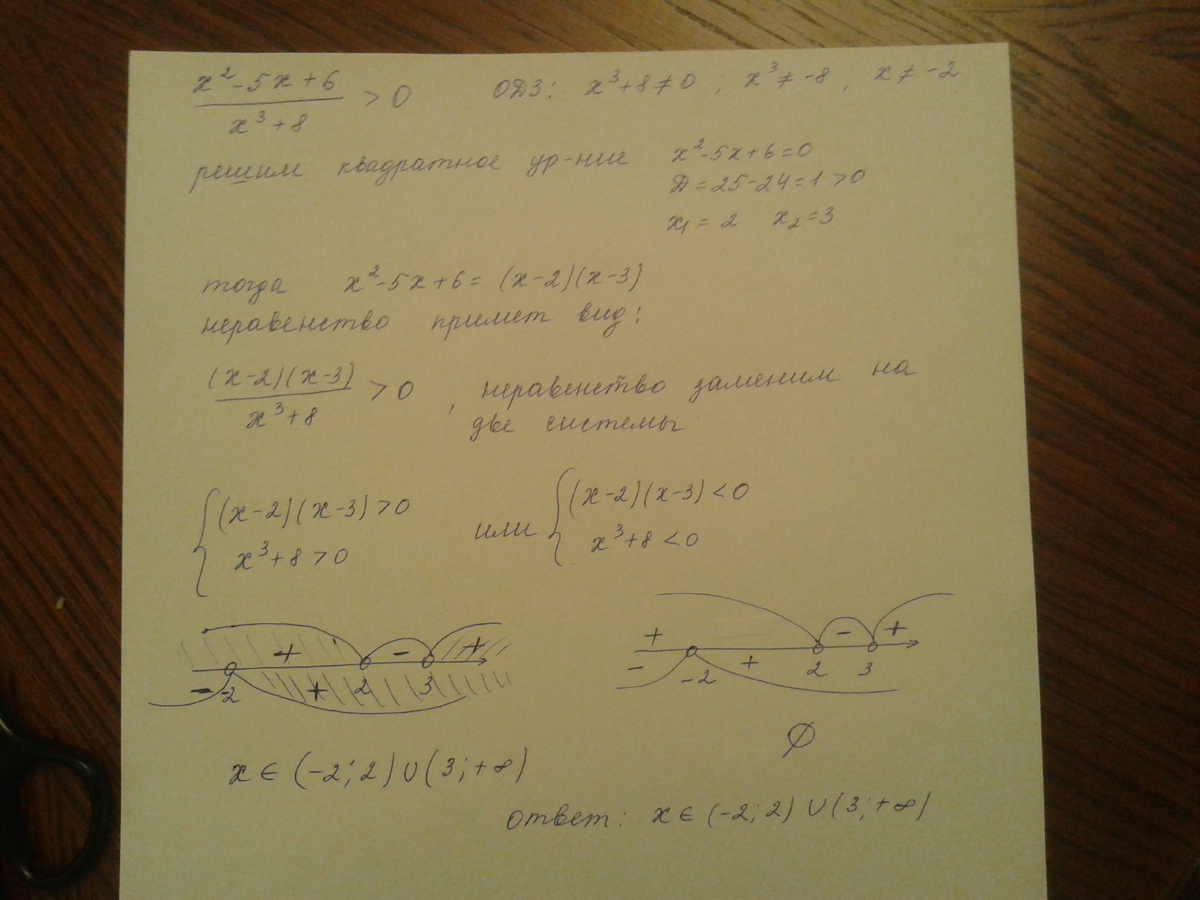 x²-5x+6 / x³+8 > 0 ОДЗ: x³+8≠0 ; x³≠-8 , x≠-2
решим квадратное ур-ние x²-5x+6=0
Д=25-24=1>0
x₁=2 x₂=3
тогда x²-5x+6=(x-2)(x-3)
неравенство примет вид:
(x-2)(x-3) / x³+8 > 0 , неравенство заменим на
две системы
{ (x-2)(x-3)>0 или { (x-2)(x-3)<0
x³+8>0 x³+8<0
+ - + + - +
- -2 + 2 3 - -2 + 2 3
∅
x∈(-2;2)∪(3;+∞)
ответ: x∈(-2;2)∪(3;+∞)